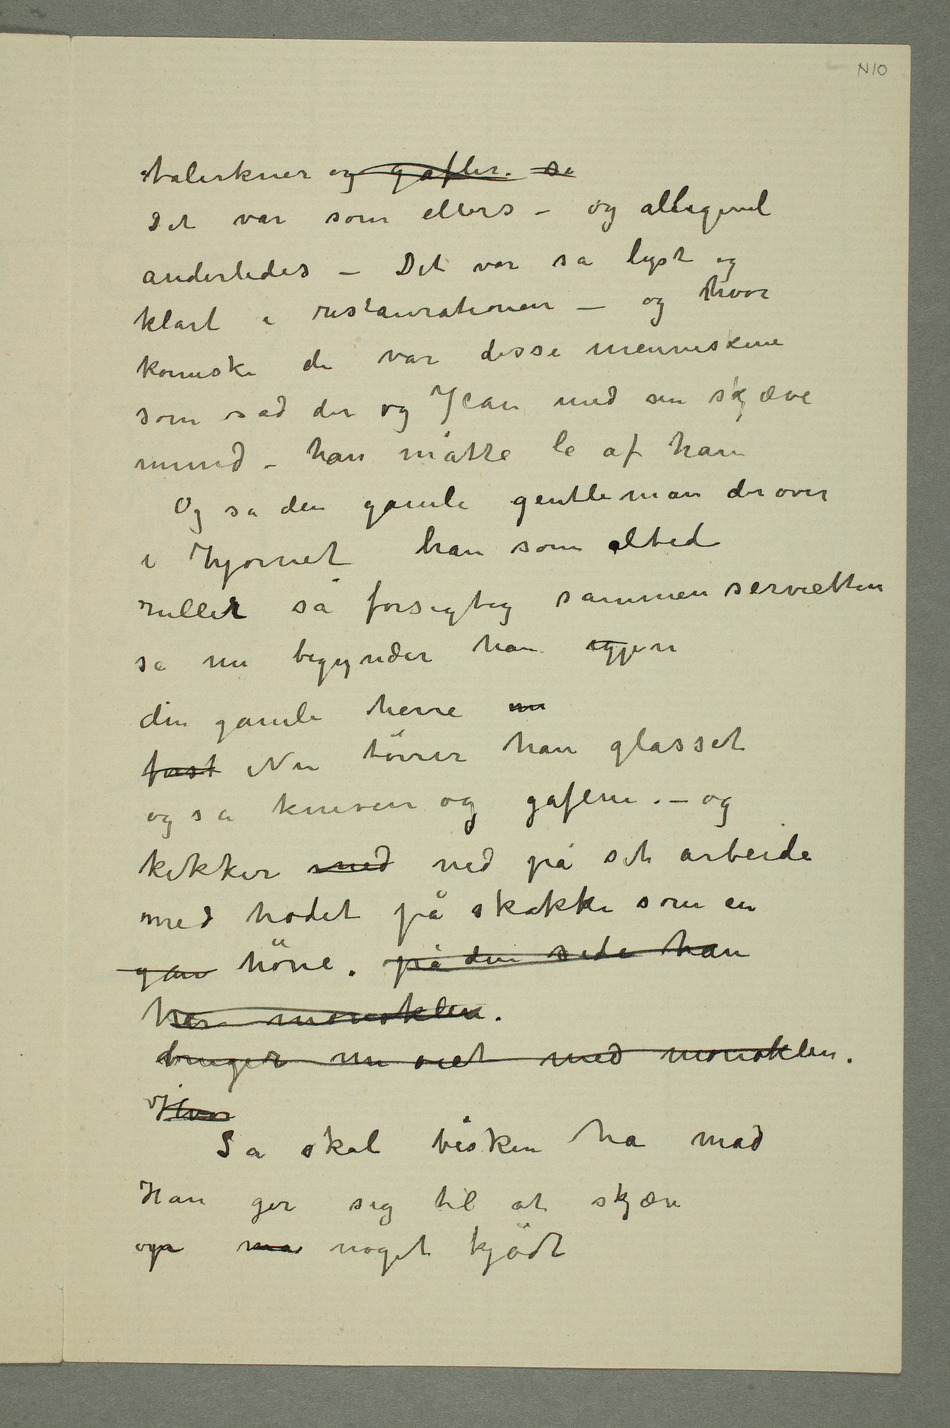 N10
talerkner og gafler. så
Det var som ellers – og alligevel
anderledes – Det var så lyst og
klart i restaurationen – og hvor
komiske de var disse menneskene
som sad der og Jean med sin skjæve
mund – han måtte le af ham
Og så den gamle gentleman derover
i Hjørnet han som altid
ruller så forsigtig sammen servietten
så nu begynder han igjen
den gamle herre nu
først Nu törrer han glasset
og så kniven og gaflene. – og
kikker med ned på sit arbeide
med hodet på skakke som en
gam höne. på den side han
har monoklen.
bruger nu öiet med monoklen.
Hvor
Så skal bisken ha mad
Han gir sig til at skjære
op noget kjödt